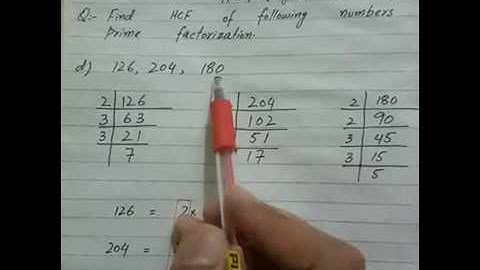 Q:- Find HCF of following numbers
prime factorization.
d) 126, 204, 180
2 126
3 63
3 21
7
204
102
51
17
2 180
2 90
3 45
3 15
5
126 = 2x
204 =